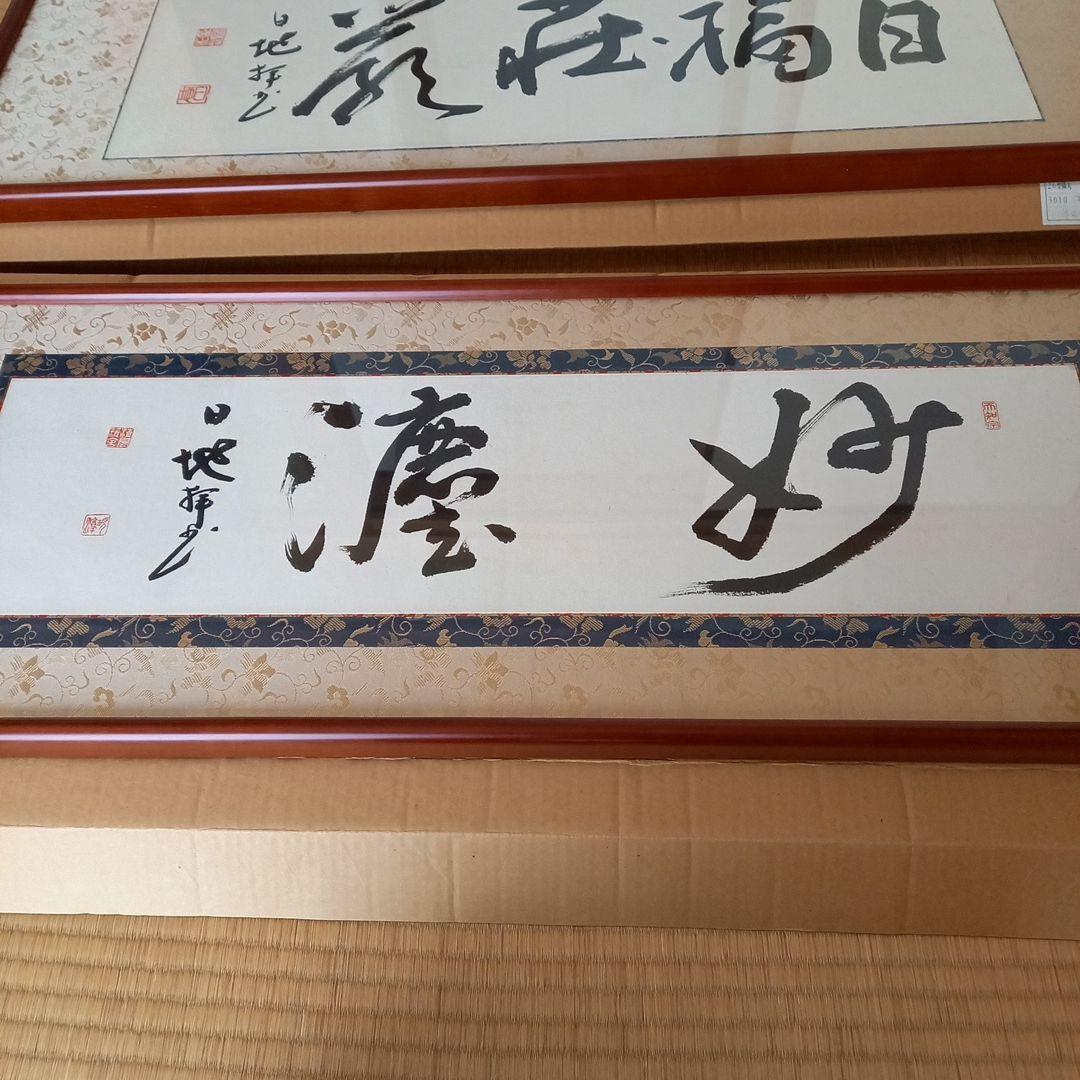 百福荘厳
日地拝書
3010
妙灋
日地拝書